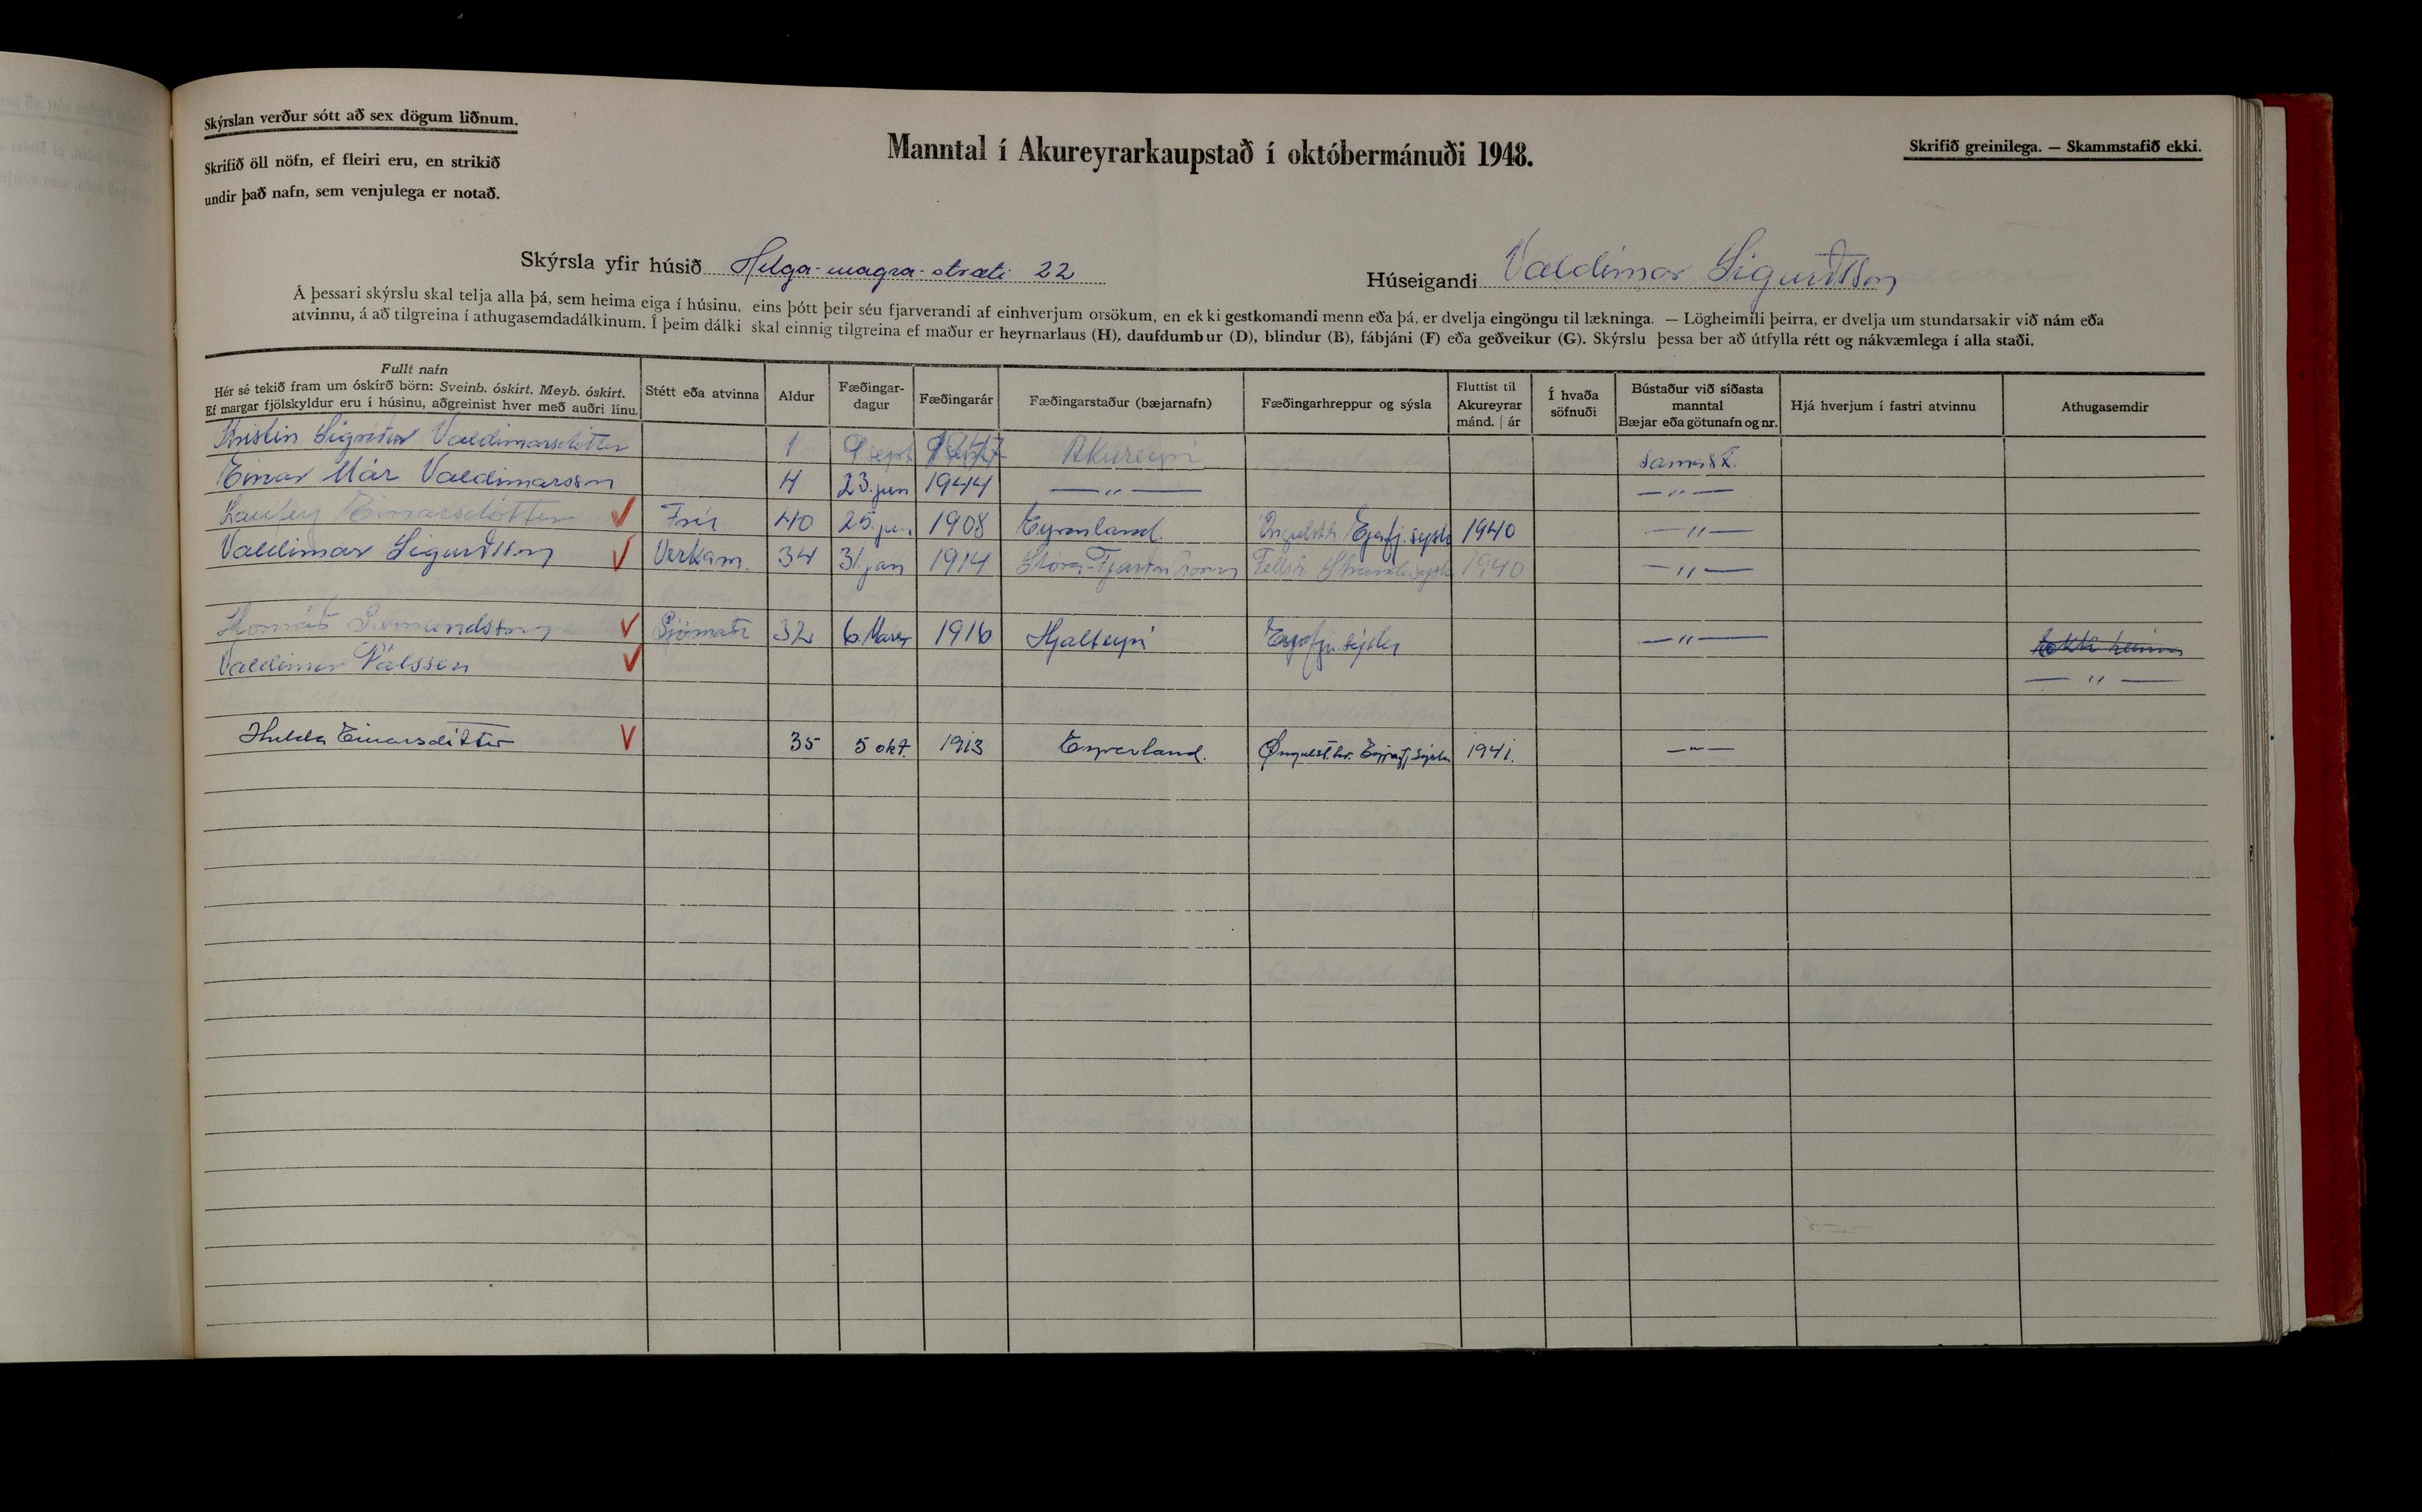 Skýrslan verður sótt að sex dögum liðnum.
Skrifið öll nöfn, ef fleiri eru, en strikið
undir það nafn, sem venjulega er notað.
Manntal í Akureyrarkaupstað í októbermánuði 1948.
Skrifið greinilega. — Skammstafið ekki.
Skýrsla yfir húsið Helga-magra-stræti 22
Húseigandi Valdimar Sigurðsson
Á þessari skýrslu skal telja alla þá, sem heima eiga í húsinu, eins þótt þeir séu fjarverandi af einhverjum orsökum, en ekki gestkomandi menn eða þá, er dvelja eingöngu til lækninga. — Lögheimili þeirra, er dvelja um stundarsakir við nám eða
atvinnu, á að tilgreina í athugasemdadálkinum. Í þeim dálki skal einnig tilgreina ef maður er heyrnarlaus (H), daufdumbur (D), blindur (B), fábjáni (F) eða geðveikur (G). Skýrslu þessa ber að útfylla rétt og nákvæmlega í alla staði.
Fullt nafn
Hér sé tekið fram um óskírð börn: Sveinb. óskírt. Meyb. óskírt.
Ef margar fjölskyldur eru í húsinu, aðgreinist hver með auðri línu.
Stétt eða atvinna
Aldur
Fæðingar-
dagur
Fæðingarár
Fæðingarstaður (bæjarnafn)
Fæðingarhreppur og sýsla
Fluttist til
Akureyrar
mánd. | ár
Í hvaða
söfnuði
Bústaður við síðasta
manntal
Bæjar eða götunafn og nr.
Hjá hverjum í fastri atvinnu
Athugasemdir
Kristín Sigríður Valdimarsdóttir 1 9 sept Akureyri samast.
Einar Már Valdimarsson 4 23. jun 1944 — " — — " —
Laufey Einarsdóttir V Frú 40 25. 1908 Eyrarland. Öngulsth. Eyafj. sýsla 1940 — " —
Valdimar Sigurðsson V Verkam. 34 31. jan 1914 Stóra-Fjarðarhorn Fellsh. Strandasýsla 1940 — " —
V Sjómaðr 32 6. Mars 1916 Hjalteyri Eyafj. sýsla — " — Ekki heima
Valdimar Pálsson V — " —
Hulda Einarsdóttir V 35 5 okt. 1913 Eyrarland. Öngulst.hr. Eyjafj. sýsla 1941. — " —